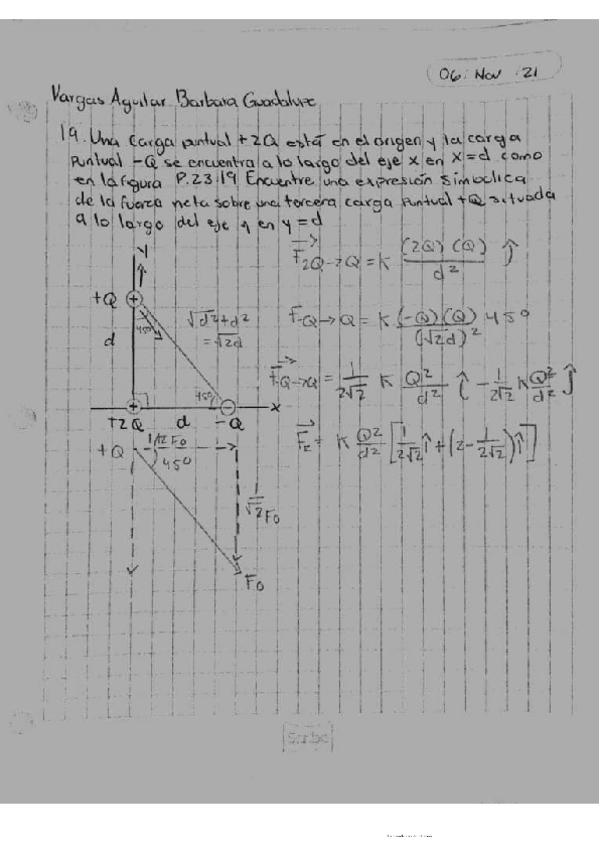 06. Nov. 21
Vargas Aguilar Barbara Guadalupe
19. Una carga puntual +2Q está en el origen y la carga
puntual -Q se encuentra a lo largo del eje x en x=d como
en la figura P.23.19 Encuentre una expresión simbolica
de la fuerza neta sobre una tercera carga puntual +Q situada
a lo largo del eje y en y=d
y
F2Q→Q = K (2Q)(Q) / d² ĵ
+Q +
45°
√d²+d²
= √2d
F-Q→Q = K (-Q)(Q) / (√2d)² 45°
d
F-Q→Q = 1/2√2 K Q²/d² î - 1/2√2 K Q²/d² ĵ
45°
+ - x
+2Q d -Q
FR = K Q²/d² [1/2√2 î + (2 - 1/2√2) ĵ]
+Q 1/√2 F0
45°
1/√2 F0
F0
Scribe